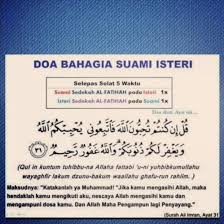 DOA BAHAGIA SUAMI ISTERI
Selepas Solat 5 Waktu
Suami Sedekah AL-FATIHAH pada Isteri 1x
Isteri Sedekah AL-FATIHAH pada Suami 1x
قُلْ إِن كُنتُمْ تُحِبُّونَ اللَّهَ فَاتَّبِعُونِي يُحْبِبْكُمُ اللَّهُ
وَيَغْفِرْ لَكُمْ ذُنُوبَكُمْ وَاللَّهُ غَفُورٌ رَّحِيمٌ ٣١
(Qul in kuntum tuhibbu-na Allaha fattabi 'u-ni yuhbibkumullahu
wayaghfir lakum dzunu-bakum waallahu ghafu-run rahim.)
Maksudnya: "Katakanlah ya Muhammad! "Jika kamu mengasihi Allah, maka
hendaklah kamu mengikuti aku, nescaya Allah mengasihi kamu dan
mengampuni dosa kamu. Dan Allah Maha Pengampun lagi Penyayang."
(Surah Ali Imran, Ayat 31)